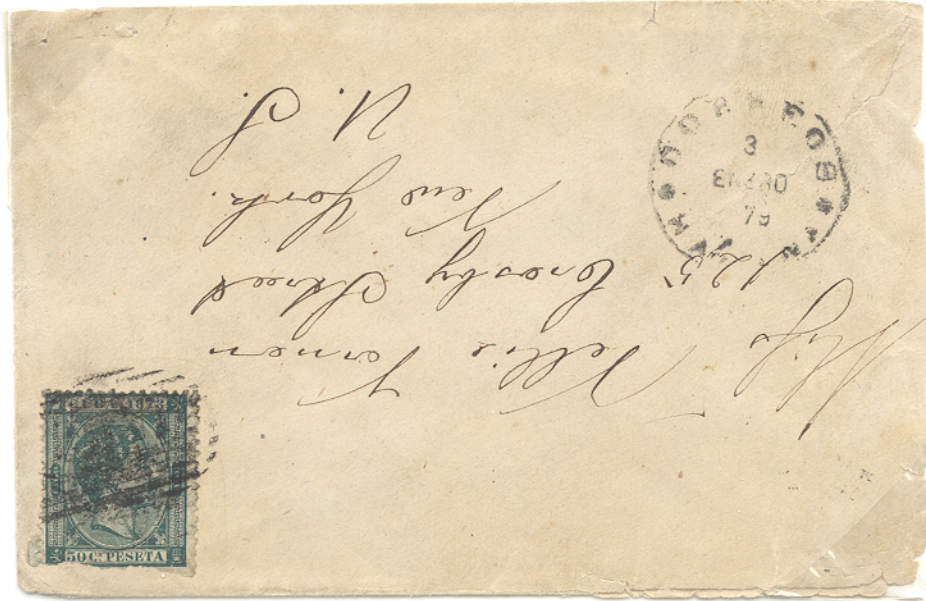 Miss Nellie
125 Crosby Street
New York.
U. S.
CORREOS
3
ENERO
79
1878
50 Cs PESETA